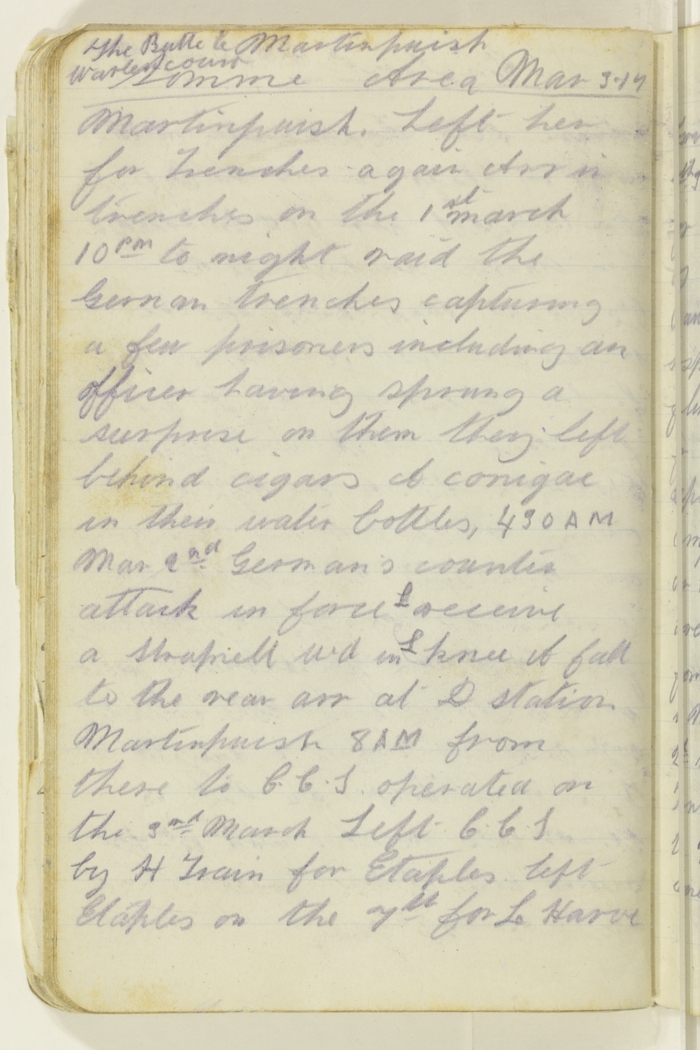 The Butte le Martinpuish
Warlencourt
Somme Area Mar 3-17
Martinpuish. Left her
for trenches again Arr in
trenches on the 1st march
10 PM to night raid the
German trenches capturing
a few prisoners including an
officer having sprung a
surprise on them they left
behind cigars & conigac
in their water bottles, 430 AM
Mar 2nd Germans counter
attack in force I receive
a shrapnell wd in L knee & fall
to the rear arr at D station
Martinpuish 8 AM from
there to C.C.S. operated on
the 3rd March Left C.C.S
by H Train for Etaples left
Etaples on the 7th for Le Harve